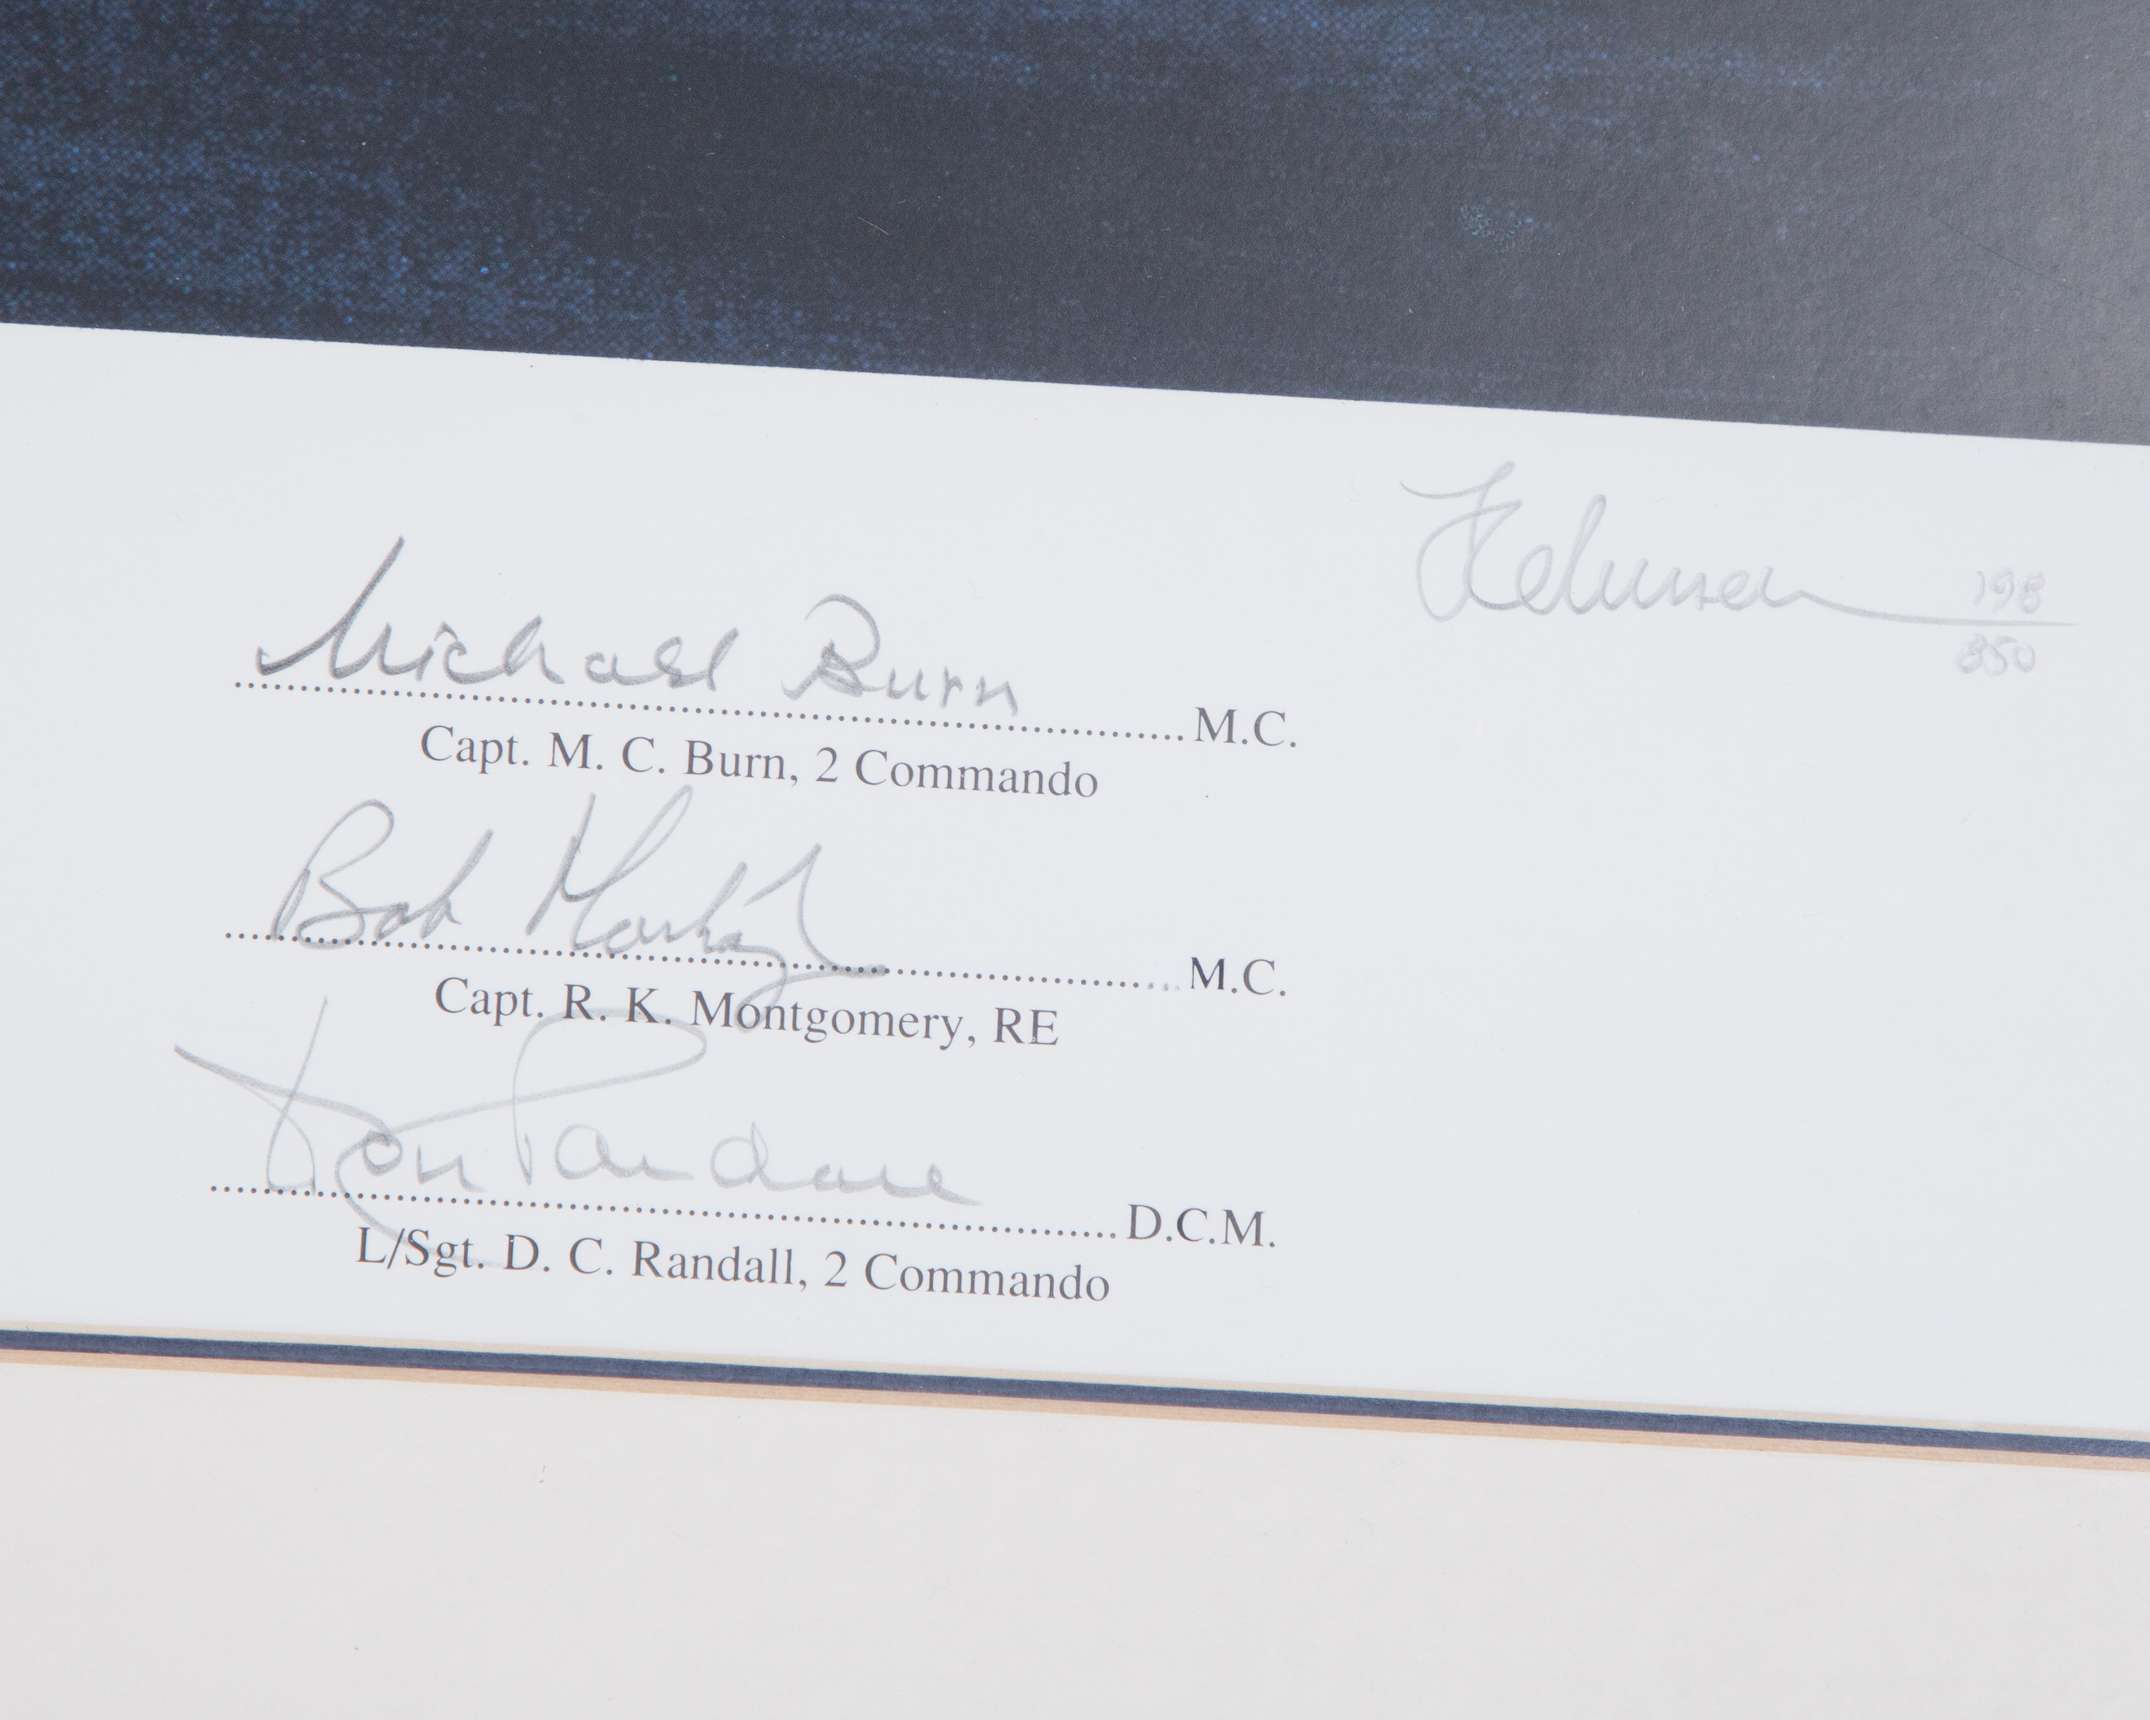 198
850
Michael Burn M.C.
Capt. M. C. Burn, 2 Commando
Bob Montgomery M.C.
Capt. R. K. Montgomery, RE
Don Randall D.C.M.
L/Sgt. D. C. Randall, 2 Commando